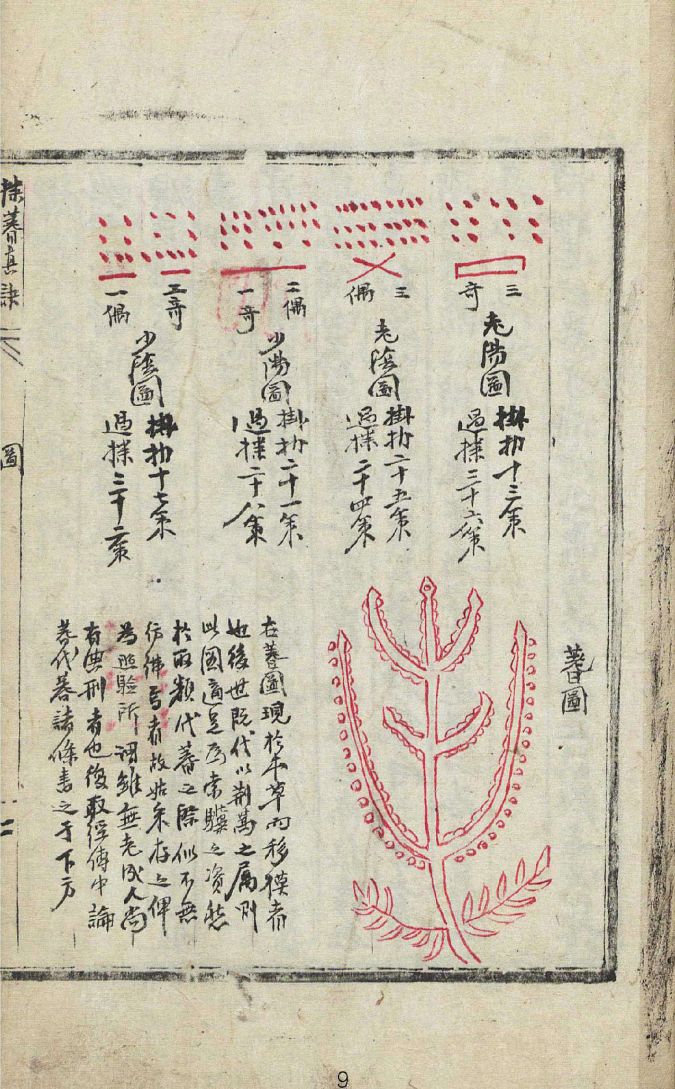 三奇
老陽圖
掛扐十三策
過揲三十六策
三偶
老陰圖
掛扐二十五策
過揲二十四策
二偶
一奇
少陽圖
掛扐二十一策
過揲二十八策
二奇
一偶
少陰圖
掛扐十七策
過揲三十二策
蓍圖
右蓍圖現於本草而移模者
也後世既代以荊蒿之屬則
此圖適足為索驥之資愁
於取類代蓍之際似不無
彷彿焉者故姑朱存之俾
為照驗所謂雖無老成人尚
有典刑者也復取經傳中論
蓍代蓍諸條書之于下方
揲蓍真訣
圖
二
9